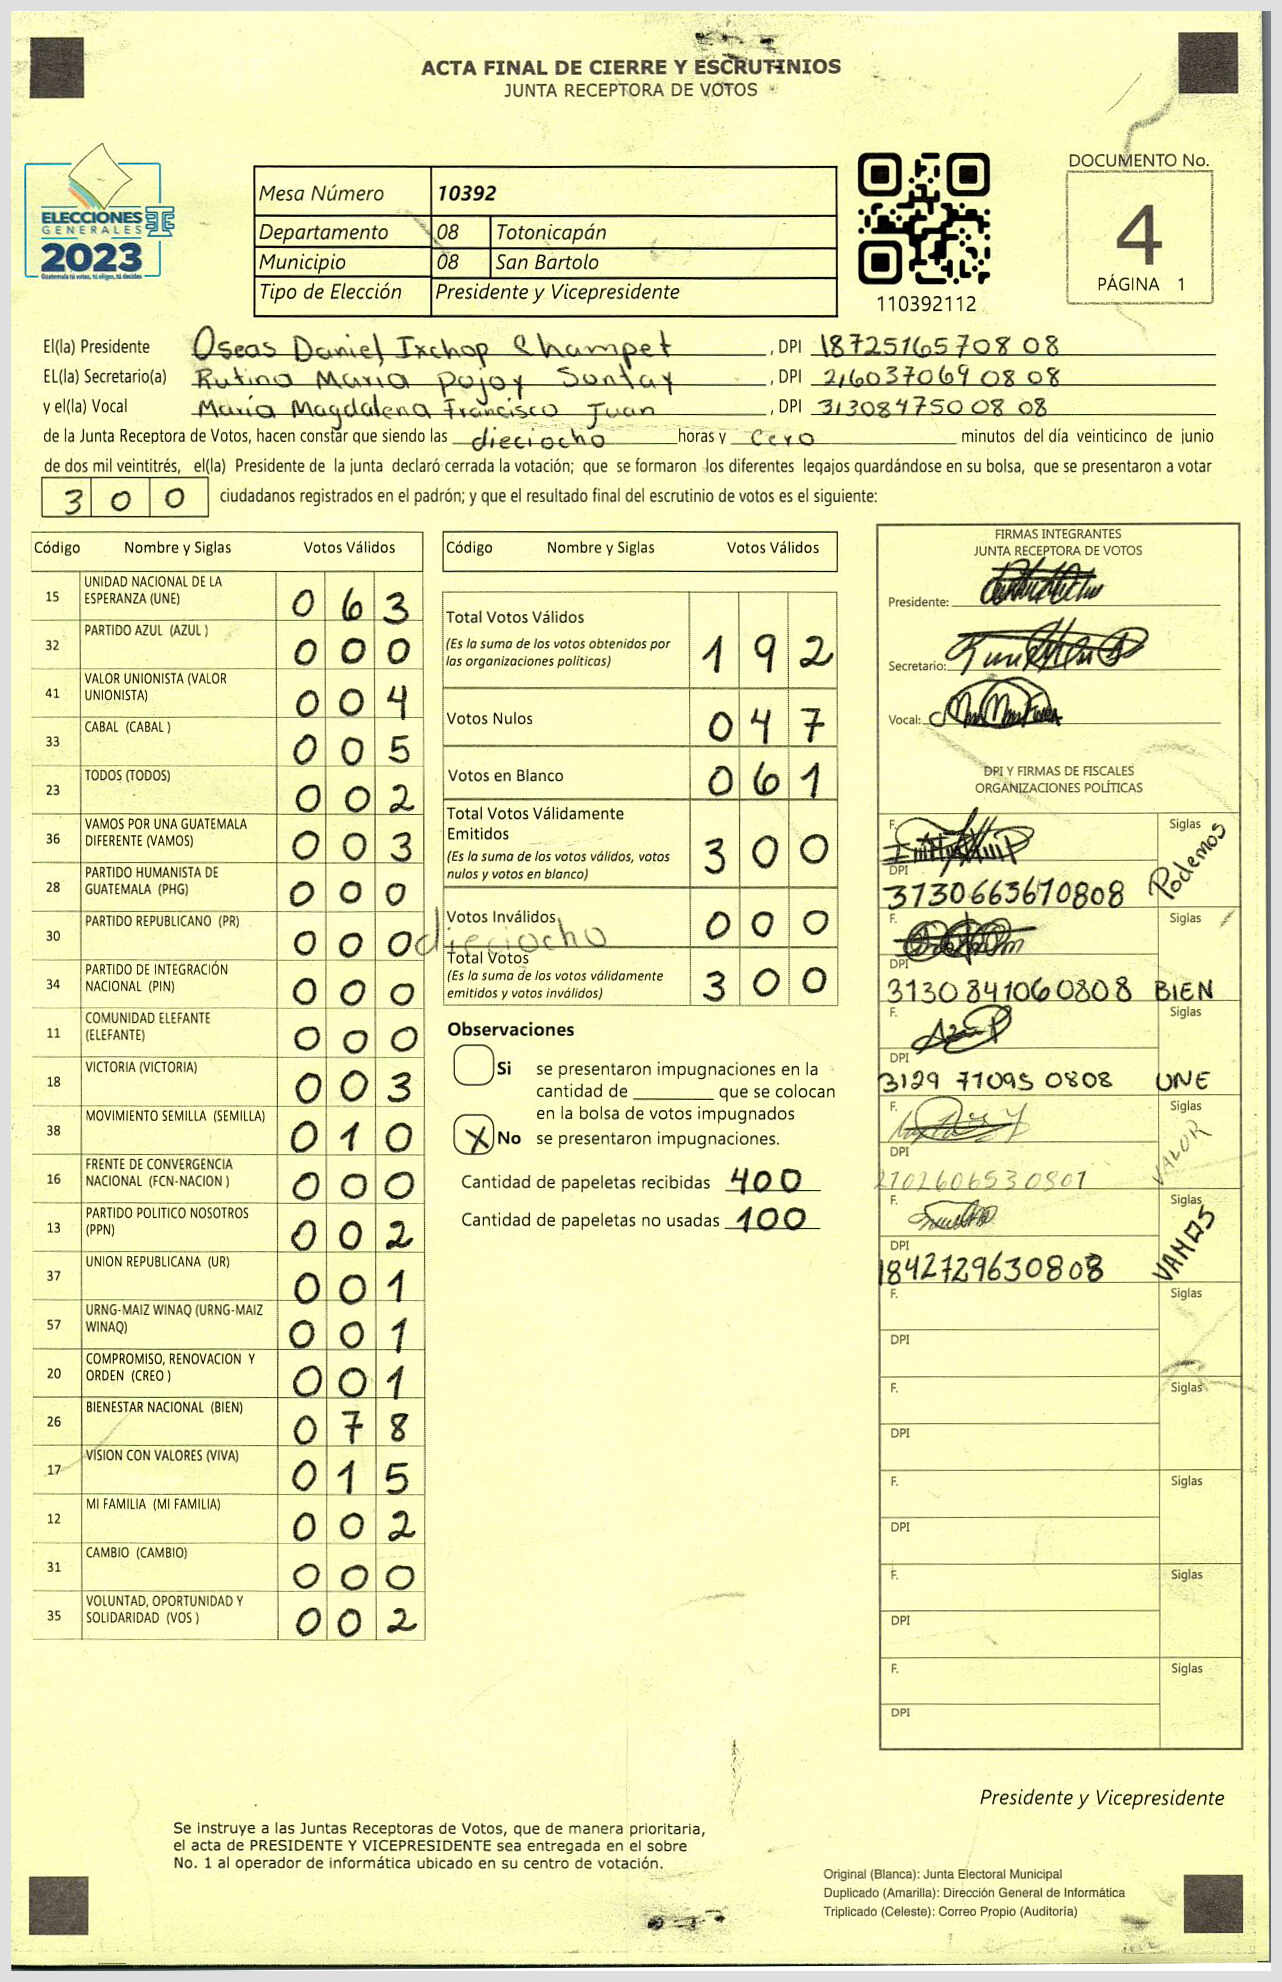 ACTA FINAL DE CIERRE Y ESCRUTINIOS
JUNTA RECEPTORA DE VOTOS
ELECCIONES
GENERALES
2023
Guatemala tú votas, tú eliges, tú decides
Mesa Número 10392
Departamento 08 Totonicapán
Municipio 08 San Bartolo
Tipo de Elección Presidente y Vicepresidente
110392112
DOCUMENTO No.
4
PÁGINA 1
El(la) Presidente Oseas Daniel Ixchop Champet , DPI 1872516570808
EL(la) Secretario(a) Rutina María Pojoy Sontay , DPI 2160370690808
y el(la) Vocal María Magdalena Francisco Juan , DPI 3130847500808
de la Junta Receptora de Votos, hacen constar que siendo las dieciocho horas y cero minutos del día veinticinco de junio
de dos mil veintitrés, el(la) Presidente de la junta declaró cerrada la votación; que se formaron los diferentes legajos guardándose en su bolsa, que se presentaron a votar
300 ciudadanos registrados en el padrón; y que el resultado final del escrutinio de votos es el siguiente:
Código Nombre y Siglas Votos Válidos
15 UNIDAD NACIONAL DE LA ESPERANZA (UNE) 063
32 PARTIDO AZUL (AZUL ) 000
41 VALOR UNIONISTA (VALOR UNIONISTA) 004
33 CABAL (CABAL ) 005
23 TODOS (TODOS) 002
36 VAMOS POR UNA GUATEMALA DIFERENTE (VAMOS) 003
28 PARTIDO HUMANISTA DE GUATEMALA (PHG) 000
30 PARTIDO REPUBLICANO (PR) 000
34 PARTIDO DE INTEGRACIÓN NACIONAL (PIN) 000
11 COMUNIDAD ELEFANTE (ELEFANTE) 000
18 VICTORIA (VICTORIA) 003
38 MOVIMIENTO SEMILLA (SEMILLA) 010
16 FRENTE DE CONVERGENCIA NACIONAL (FCN-NACION ) 000
13 PARTIDO POLITICO NOSOTROS (PPN) 002
37 UNION REPUBLICANA (UR) 001
57 URNG-MAIZ WINAQ (URNG-MAIZ WINAQ) 001
20 COMPROMISO, RENOVACION Y ORDEN (CREO ) 001
26 BIENESTAR NACIONAL (BIEN) 078
17 VISION CON VALORES (VIVA) 015
12 MI FAMILIA (MI FAMILIA) 002
31 CAMBIO (CAMBIO) 000
35 VOLUNTAD, OPORTUNIDAD Y SOLIDARIDAD (VOS ) 002
Código Nombre y Siglas Votos Válidos
Total Votos Válidos
(Es la suma de los votos obtenidos por las organizaciones políticas) 192
Votos Nulos 047
Votos en Blanco 061
Total Votos Válidamente Emitidos
(Es la suma de los votos válidos, votos nulos y votos en blanco) 300
Votos Inválidos 000
dieciocho
Total Votos
(Es la suma de los votos válidamente emitidos y votos inválidos) 300
Observaciones
Si se presentaron impugnaciones en la
cantidad de ________ que se colocan
en la bolsa de votos impugnados
X No se presentaron impugnaciones.
Cantidad de papeletas recibidas 400
Cantidad de papeletas no usadas 100
FIRMAS INTEGRANTES
JUNTA RECEPTORA DE VOTOS
Presidente:
Secretario:
Vocal:
DPI Y FIRMAS DE FISCALES
ORGANIZACIONES POLÍTICAS
F. Siglas Podemos
DPI
3730663670808
F. Siglas
DPI
3130841060808 BIEN
F. Siglas
DPI
3129 77095 0808 UNE
F. Siglas VALOR
DPI
2702606530801
F. Siglas VAMOS
DPI
1842729630808
F. Siglas
DPI
F. Siglas
DPI
F. Siglas
DPI
F. Siglas
DPI
F. Siglas
DPI
Presidente y Vicepresidente
Se instruye a las Juntas Receptoras de Votos, que de manera prioritaria,
el acta de PRESIDENTE Y VICEPRESIDENTE sea entregada en el sobre
No. 1 al operador de informática ubicado en su centro de votación.
Original (Blanca): Junta Electoral Municipal
Duplicado (Amarilla): Dirección General de Informática
Triplicado (Celeste): Correo Propio (Auditoría)